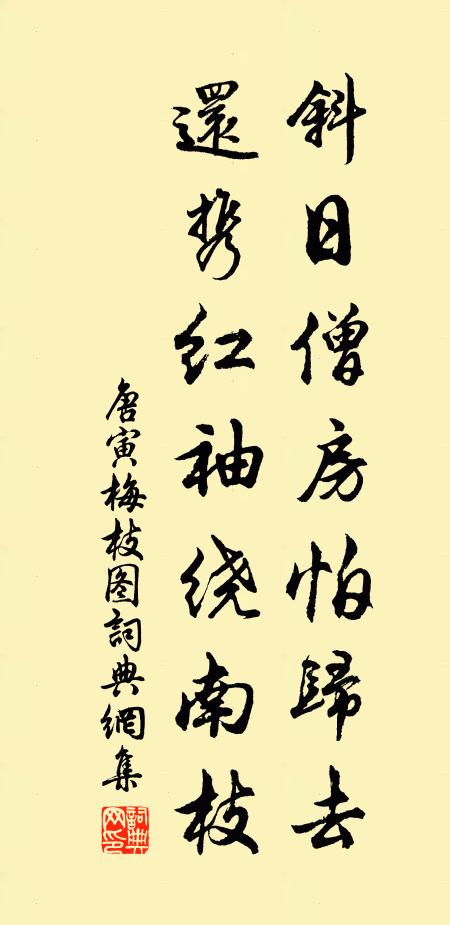 斜日僧房怕歸去
還携红袖绕南枝
唐寅梅枝图詞典網集
詞典网印